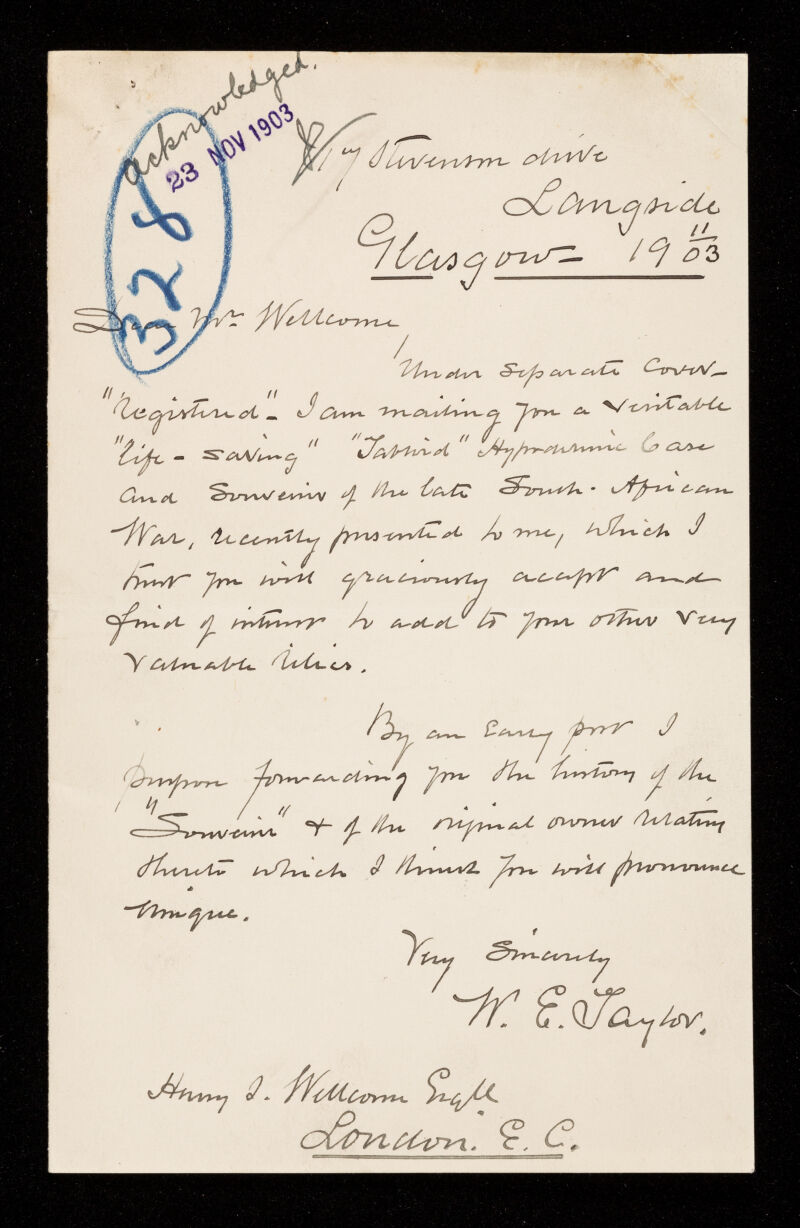 Acknowledged.
23 NOV 1903
328
17 Stevenson drive
Langside
Glasgow - 19 11/03
Dear Mr Wellcome,
Under separate cover -
"registered" - I am mailing you a veritable
"life - saving" "Tabloid" Hypodermic Case
and Souvenir of the late South - African
War, recently presented to me, which I
trust you will graciously accept and
find of interest to add to your other very
valuable relics.
By an early post I
purpose forwarding you the history of the
"Souvenir" & of the original owner relating
thereto which I think you will pronounce
unique.
Very Sincerely
W. E. Taylor.
Henry S. Wellcome Esq
London. E. C.